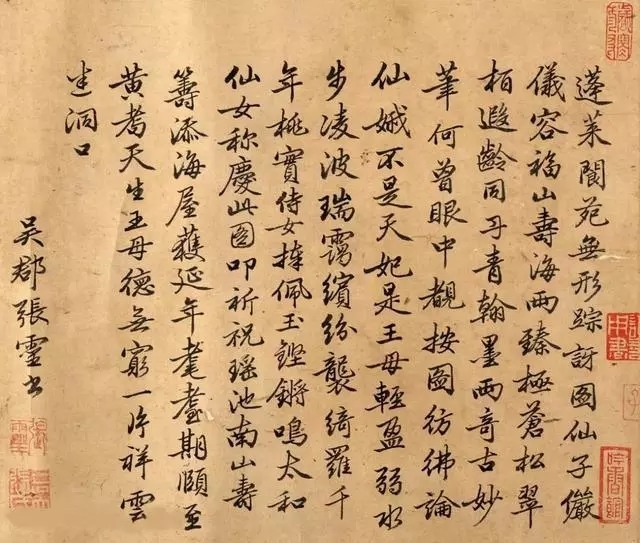 蓬萊閬苑無形踪訝圖仙子儼
儀容福山壽海兩臻極蒼松翠
栢遐齡同丹青翰墨兩奇古妙
筆何曾眼中覩按圖彷彿論
仙娥不是天妃是王母輕盈弱水
步凌波瑞靄繽紛襲綺羅千
年桃實侍女捧佩玉鏗鏘鳴太和
仙女称慶此圖叩祈祝瑤池南山壽
籌添海屋獲延年耄耋期頤至
黄耇天生王母德無窮一片祥雲
生洞口
吳郡張靈書